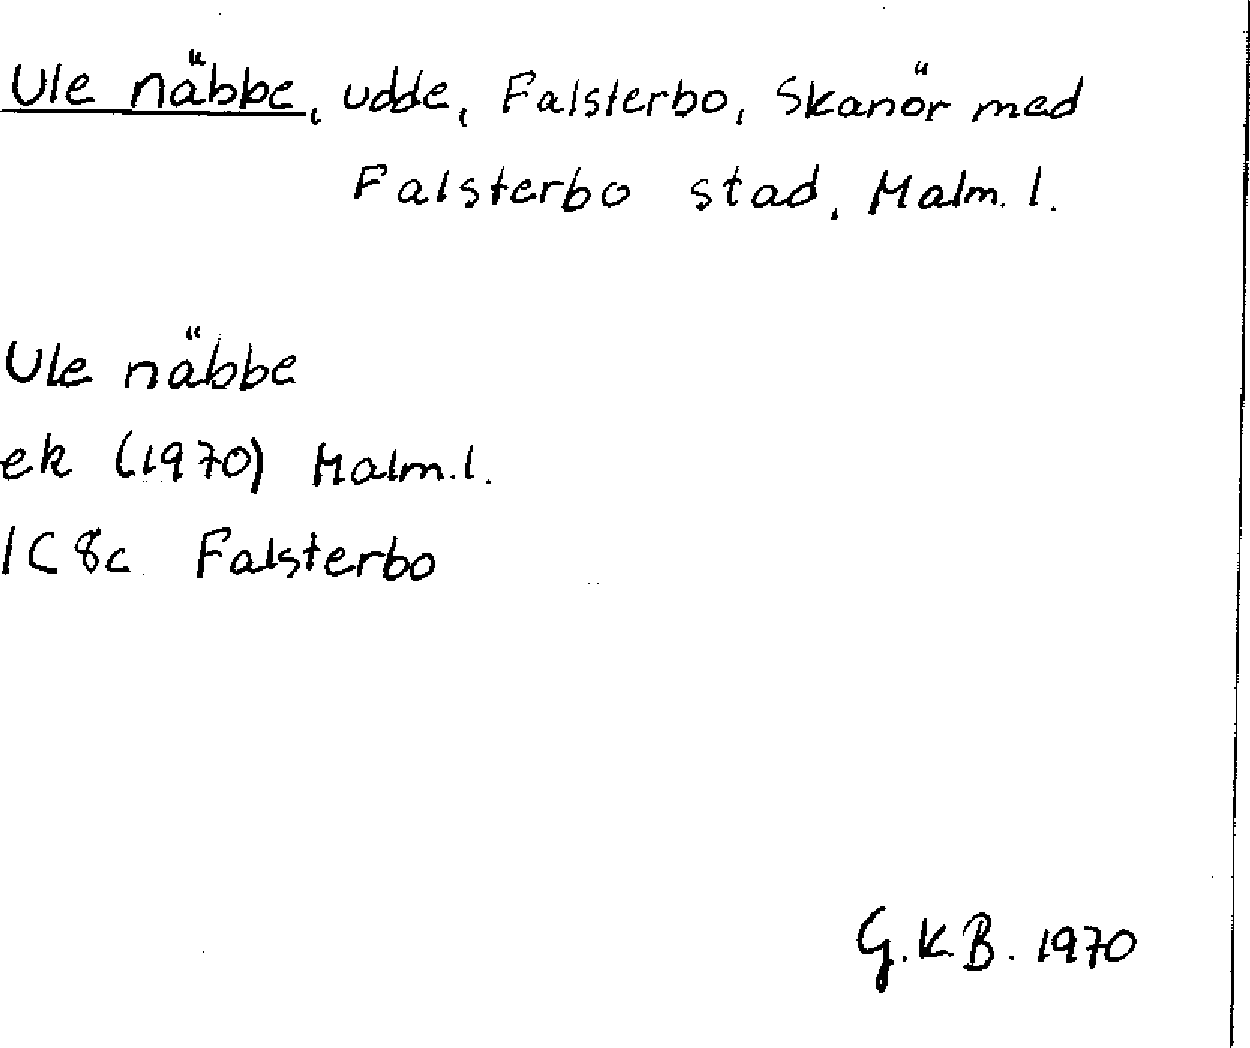 Ule näbbe, udde, Falsterbo, Skanör med
Falsterbo stad, Malm. l.
Ule näbbe
ek (1970) Malm. l.
1C 8c Falsterbo
G.K.B. 1970